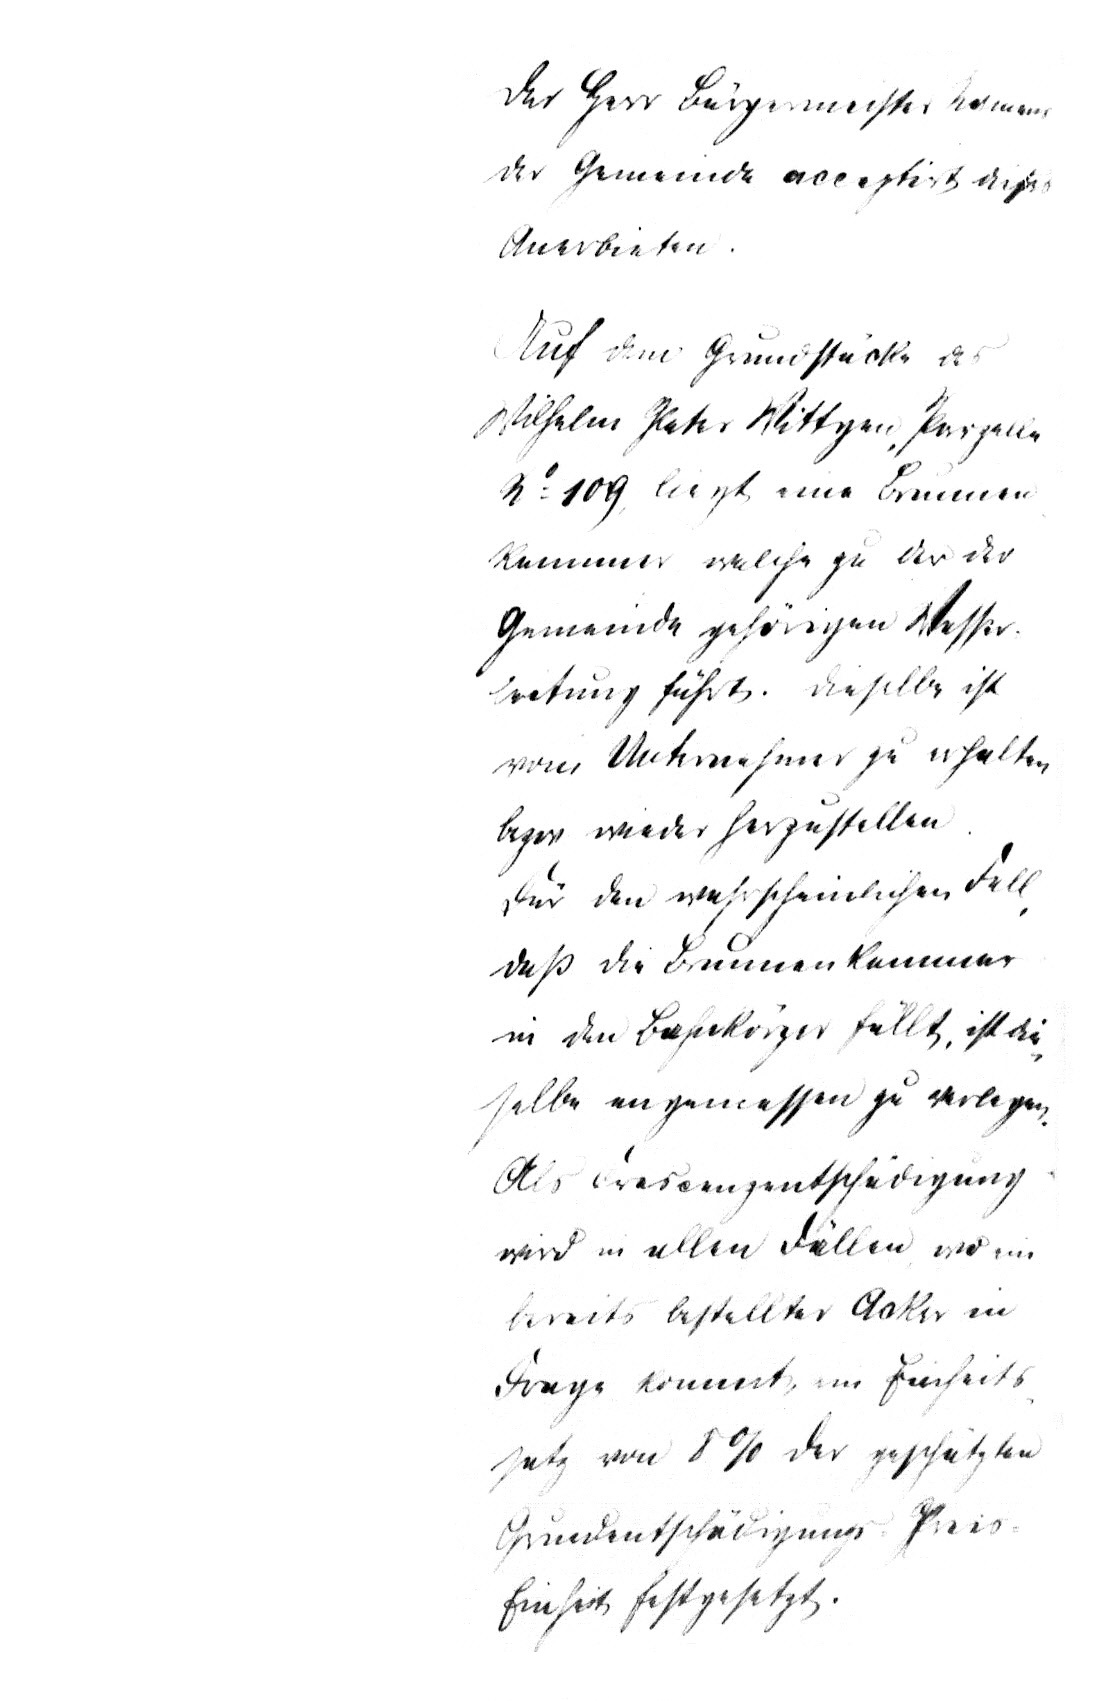 Der Herr Bürgermeister Namens
der Gemeinde acceptirt dieses
Anerbieten.
Auf dem Grundstücke des
Wilhelm Peter Wittgen, Parzelle
No 109, liegt eine Brunnen
kammer welche zu der der
Gemeinde gehörigen Wasser-
leitung führt. Dieselbe ist
vom Unternehmer zu erhalten
bezw wieder herzustellen.
Für den wahrscheinlichen Fall,
daß die Brunnenkammer
in den Bahnkörper fällt, ist die-
selbe angemessen zu verlegen.
Als Crescenzentschädigung
wird in allen Fällen, wo ein
bereits bestellter Acker in
Frage kommt, ein Einheits-
satz von 8% der geschätzten
Grundentschädigungs-Preis-
Einheit festgesetzt.